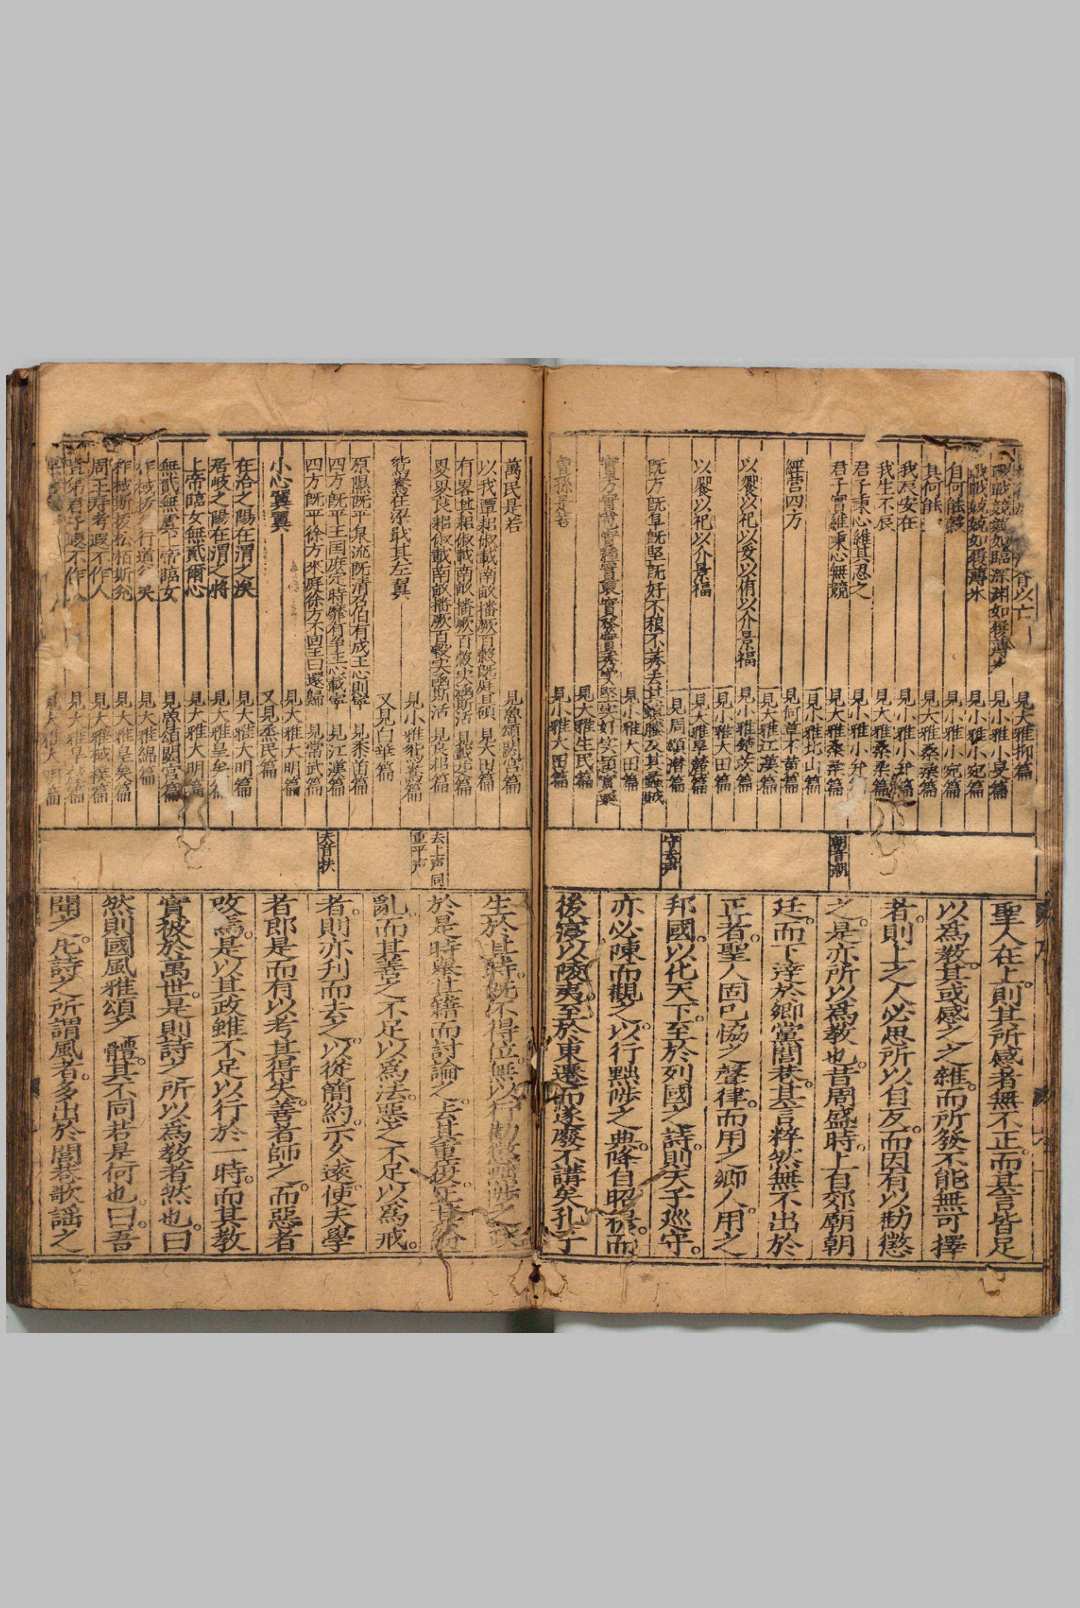 胥以亡 見大雅抑篇
戰戰兢兢如臨深淵如履薄 見小雅小旻篇
戰戰兢兢如履薄冰 見小雅小宛篇
自何能穀 見小雅小宛篇
其何能 見大雅桑柔篇
我辰安在 見小雅小弁篇
我生不辰 見大雅桑柔篇
君子秉心維其忍之 見小雅小弁篇
君子實維秉心無競 見大雅桑柔篇
見小雅北山篇
經营四方 見何草不黄篇
見大雅江漢篇
以饗以祀以妥以侑以介景福 見小雅楚茨篇
見小雅大田篇
以饗以祀以介景福 見大雅旱麓篇
見周頌潛篇
既方既阜既堅既好不稂不莠去其螟螣及其蟊賊
見小雅大田篇
實方實苞實種實褎實發實秀实堅实好实穎實栗
見大雅生民篇
曾孫是若 見小雅大田篇
朝音潮
守去声
聖人在上。則其所感者無不正。而其言皆足
以爲教。其或感之之雜。而所發不能無可擇
者。則上之人必思所以自反。而因有以勸懲
之。是亦所以爲教也。昔周盛時。上自郊廟朝
廷。而下達於鄉黨閭巷。其言粹然無不出於
正者。聖人固已恊之聲律。而用之鄉人。用之
邦國。以化天下。至於列國之詩。則天子巡守。
亦必陳而觀之。以行黜陟之典。降自昭穆。而
後寖以陵夷。至於東遷。而遂廢不講矣。孔子
萬民是若 見魯頌閟宮篇
以我覃耜俶載南畝播厥百穀既庭且碩 見大田篇
有畧其耜俶載南畝播厥百穀实函斯活 見載芟篇
畟畟良耜俶載南畝播厥百穀实函斯活 見良耜篇
鴛鴦在梁戢其左翼 見小雅鴛鴦篇
又見白華篇
原隰既平泉流既清召伯有成王心則寧 見黍苗篇
四方既平王国庶定時靡有争王心載寧 見江漢篇
四方既平徐方來庭徐方不回王曰還歸 見常武篇
小心翼翼 見大雅大明篇
又見烝民篇
在洽之陽在渭之涘 見大雅大明篇
居岐之陽在渭之將 見大雅皇矣篇
上帝臨女無貳爾心 見大雅大明篇
無貳無虞上帝臨女 見魯頌閟宮篇
柞棫拔 行道兌矣 見大雅綿篇
柞棫斯拔松栢斯兌 見大雅皇矣篇
周王寿考遐不作人 見大雅棫樸篇
豈弟君子遐不作人 見大雅旱麓篇
見大雅大明篇
去上声同
重平声
夫音扶
生於其時。既不得位。無以行勸懲黜陟之政
於是特舉其籍而討論之。去其重復。正其紛
亂。而其善之不足以爲法。惡之不足以爲戒。
者。則亦刋而去之。以從簡約。示久遠。使夫學
者。即是而有以考其得失。善者師之。而惡者
改焉。是以其政雖不足以行於一時。而其教
實被於萬世。是則詩之所以爲教者然也。曰
然則國風雅頌之體。其不同若是何也。曰。吾
聞之。凡詩之所謂風者。多出於閭巷歌謡之